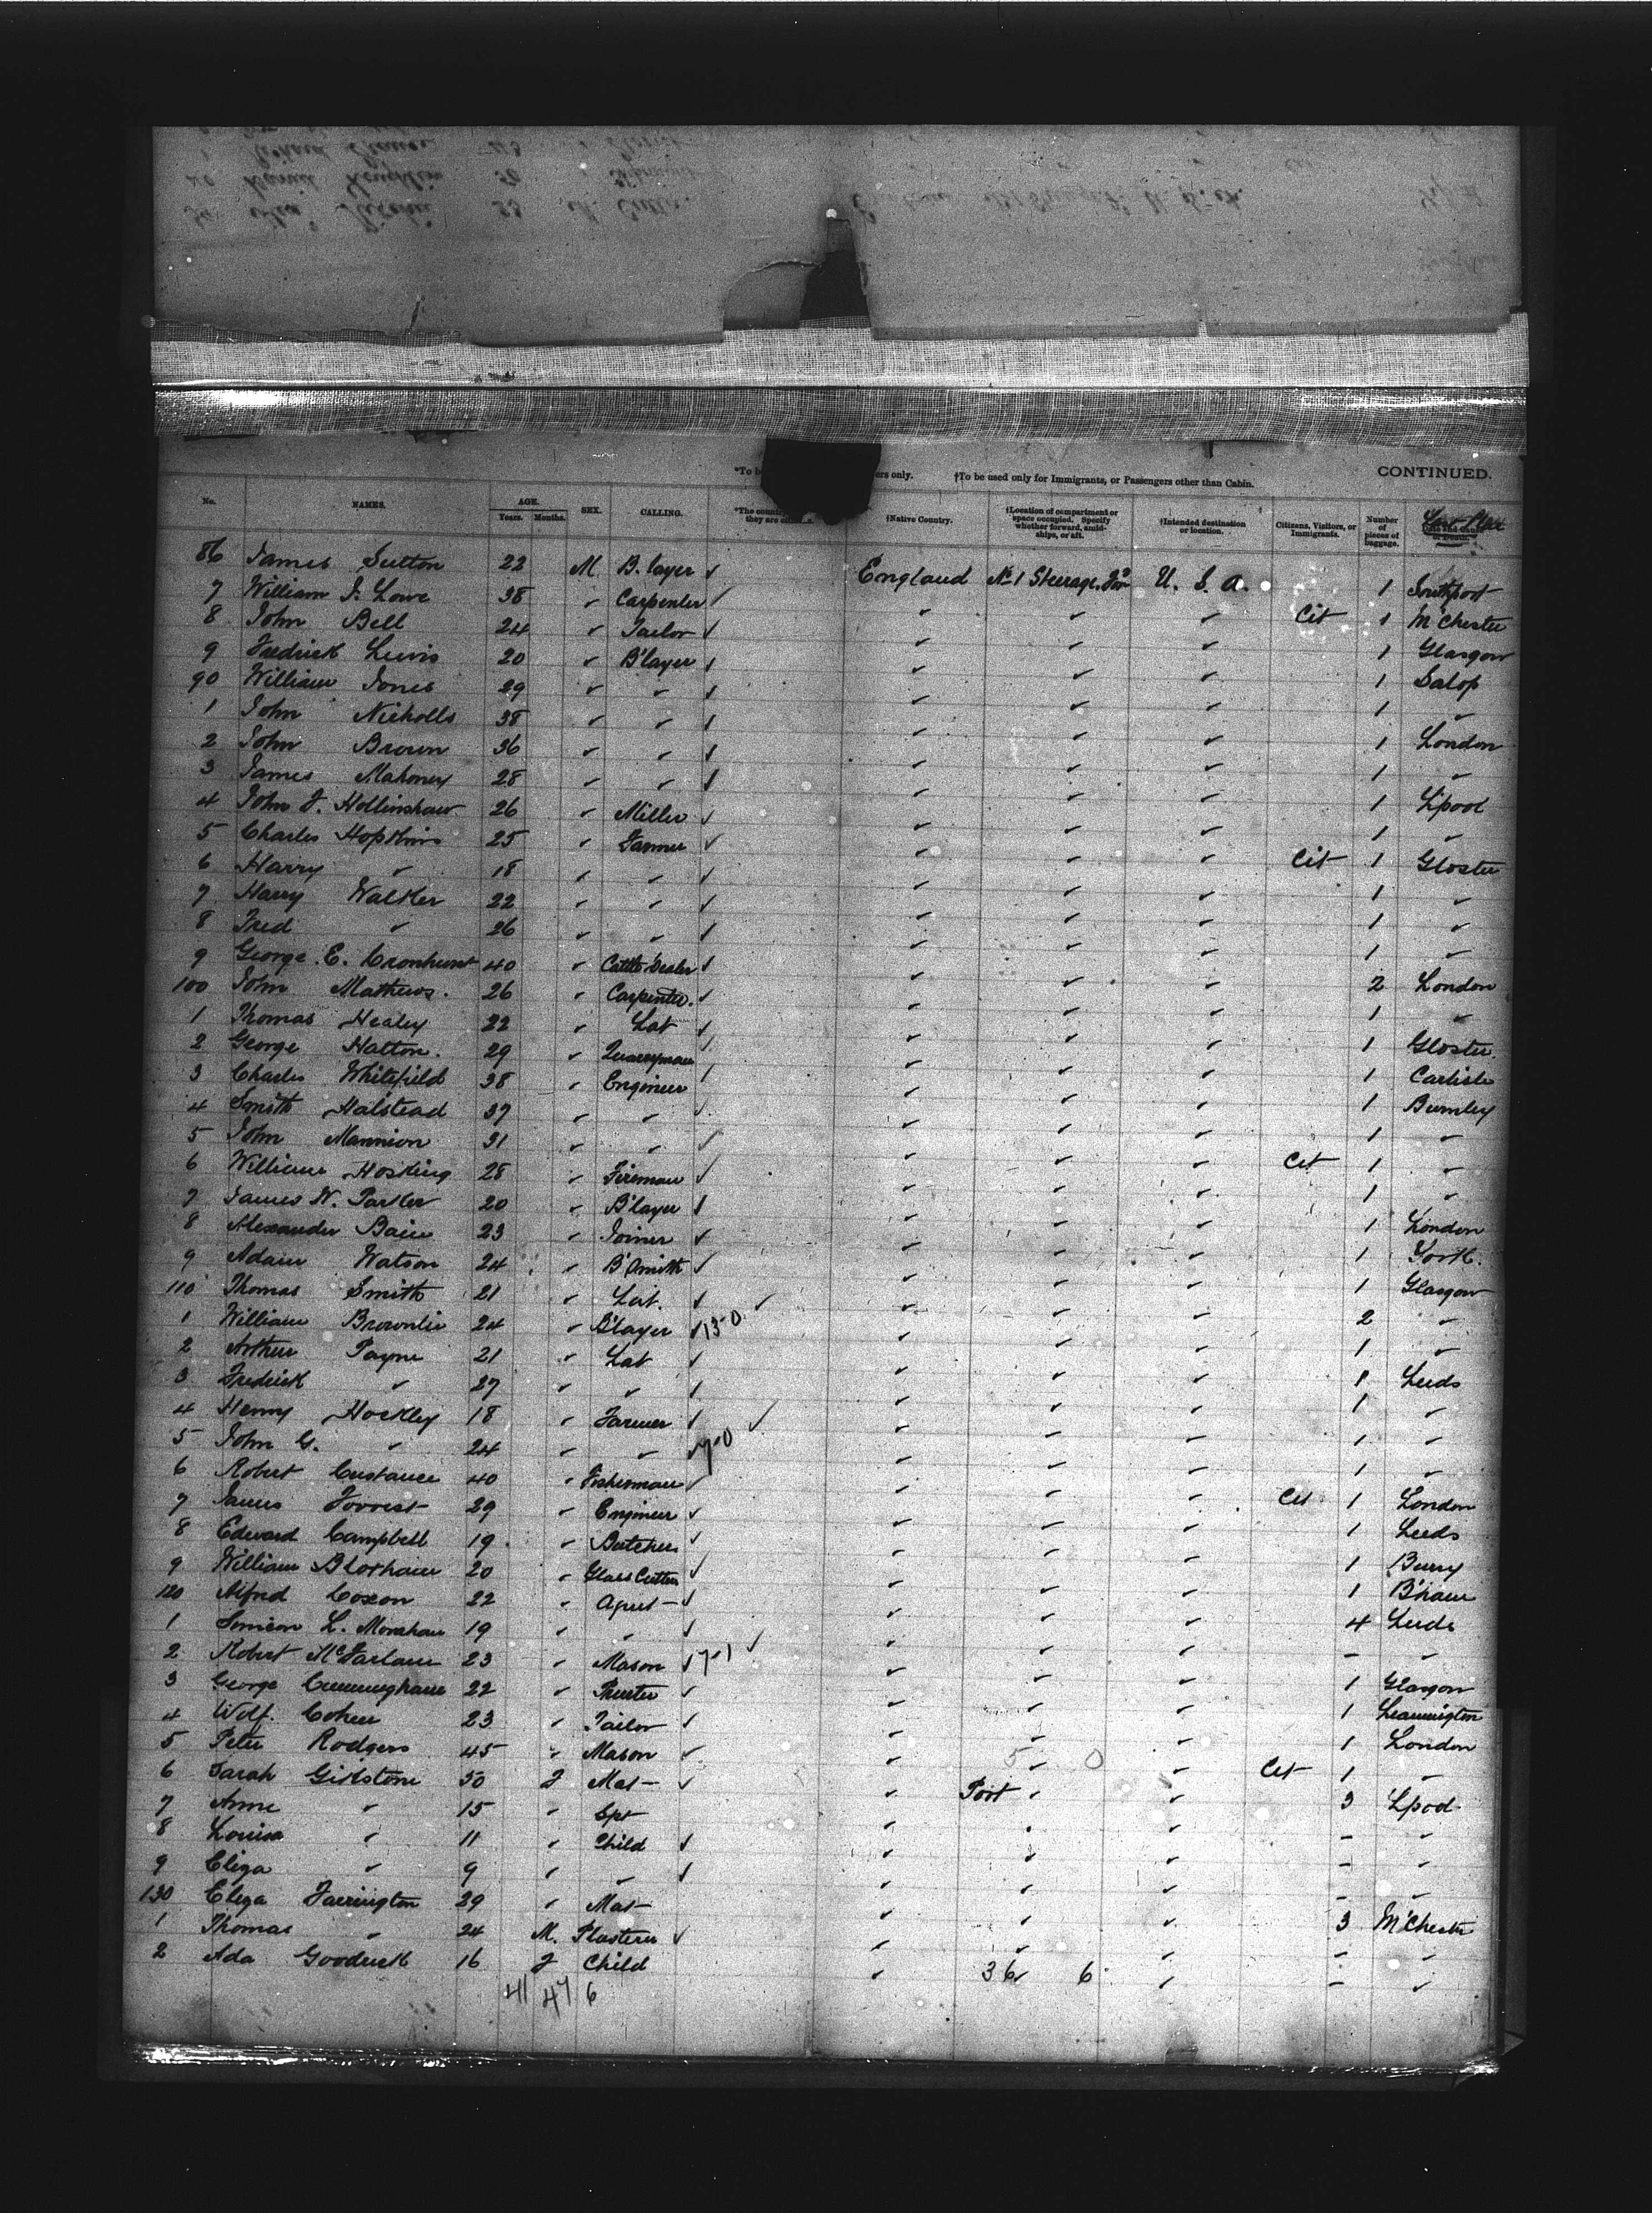 *To be ers only. †To be used only for Immigrants, or Passengers other than Cabin. CONTINUED.
No. NAMES. AGE. Years. Months. SEX. CALLING. *The country they are †Native Country. †Location of compartment or space occupied. Specify whether forward, amidships, or aft. †Intended destination or location. Citizens, Visitors, or Immigrants. Number of pieces of baggage.
86 James Sutton 22 M. B. layer ✓ England No 1 Steerage. U. S. A. 1 Southport
7 William J. Lowe 38 ✓ Carpenter ✓ ✓ ✓ ✓ Cit 1 M'Chester
8 John Bell 24 ✓ Tailor ✓ ✓ ✓ ✓ 1 Glasgow
9 Fredrick Lewis 20 ✓ B'layer ✓ ✓ ✓ ✓ 1 Salop
90 William Jones 29 ✓ ✓ ✓ ✓ ✓ ✓ 1 ✓
1 John Nicholls 38 ✓ ✓ ✓ ✓ ✓ ✓ 1 London
2 John Brown 36 ✓ ✓ ✓ ✓ ✓ ✓ 1 ✓
3 James Mahoney 28 ✓ ✓ ✓ ✓ ✓ ✓ 1 L'pool
4 John J. Hollinshaw 26 ✓ Miller ✓ ✓ ✓ ✓ 1 ✓
5 Charles Hopkins 25 ✓ Farmer ✓ ✓ ✓ ✓ Cit 1 Gloster
6 Harry ✓ 18 ✓ ✓ ✓ ✓ ✓ ✓ 1 ✓
7 Harry Walker 22 ✓ ✓ ✓ ✓ ✓ ✓ 1 ✓
8 Fred ✓ 26 ✓ ✓ ✓ ✓ ✓ ✓ 1 ✓
9 George E. Cronhurst 40 ✓ Cattle Dealer ✓ ✓ ✓ ✓ 2 London
100 John Mathews. 26 ✓ Carpenter. ✓ ✓ ✓ ✓ 1 ✓
1 Thomas Healey 22 ✓ Lab ✓ ✓ ✓ ✓ 1 Gloster.
2 George Hatton. 29 ✓ Quarryman ✓ ✓ ✓ ✓ 1 Carlisle
3 Charles Whitefield 38 ✓ Engineer ✓ ✓ ✓ ✓ 1 Burnley
4 Smith Halstead 37 ✓ ✓ ✓ ✓ ✓ ✓ 1 ✓
5 John Mannion 31 ✓ ✓ ✓ ✓ ✓ ✓ Cit 1 ✓
6 William Hosking 28 ✓ Fireman ✓ ✓ ✓ ✓ 1 ✓
7 James W. Parker 20 ✓ B'layer ✓ ✓ ✓ ✓ 1 London
8 Alexander Bain 23 ✓ Joiner ✓ ✓ ✓ ✓ 1 York.
9 Adam Watson 24 ✓ B'Smith ✓ ✓ ✓ ✓ 1 Glasgow
110 Thomas Smith 21 ✓ Lab. ✓ ✓ ✓ ✓ ✓ 2 ✓
1 William Brownlie 24 ✓ B'layer ✓ 13-0 ✓ ✓ ✓ 1 ✓
2 Arthur Payne 21 ✓ Lab ✓ ✓ ✓ ✓ 1 Leeds
3 Fredrick ✓ 27 ✓ ✓ ✓ ✓ ✓ ✓ 1 ✓
4 Henry Hockley 18 ✓ Farmer ✓ ✓ ✓ ✓ ✓ 1 ✓
5 John G. ✓ 24 ✓ ✓ ✓ 7-0 ✓ ✓ ✓ 1 ✓
6 Robert Custance 40 ✓ Fisherman ✓ ✓ ✓ ✓ Cit 1 London
7 James Forrest 29 ✓ Engineer ✓ ✓ ✓ ✓ 1 Leeds
8 Edward Campbell 19 ✓ Butcher ✓ ✓ ✓ ✓ 1 Bury
9 William Bloxham 20 ✓ Glass Cutter ✓ ✓ ✓ ✓ 1 B'ham
120 Alfred Coxon 22 ✓ Agent ✓ ✓ ✓ ✓ 4 Leeds
1 Simeon L. 19 ✓ ✓ ✓ ✓ ✓ ✓ – ✓
2 Robert McFarlane 23 ✓ Mason ✓ 7-1 ✓ ✓ ✓ ✓ 1 Glasgow
3 George Cunningham 22 ✓ Printer ✓ ✓ ✓ ✓ 1 Leamington
4 Wolf Cohen 23 ✓ Tailor ✓ ✓ ✓ ✓ 1 London
5 Peter Rodgers 45 ✓ Mason ✓ ✓ 5 ✓ 0 ✓ Cit 1 ✓
6 Sarah Gilstone 50 F Mat ✓ ✓ Port ✓ ✓ 3 L'pool
7 Anne ✓ 15 ✓ Spt ✓ ✓ ✓ – ✓
8 Louisa ✓ 11 ✓ Child ✓ ✓ ✓ ✓ – ✓
9 Eliza ✓ 9 ✓ ✓ ✓ ✓ ✓ ✓ – ✓
130 Eliza Farrington 29 ✓ Mat ✓ ✓ ✓ 3 M'Chester
1 Thomas ✓ 24 M. Plasterer ✓ ✓ ✓ ✓ – ✓
2 Ada Goodrick 16 F Child ✓ 36 6 ✓ – ✓
41 47 6